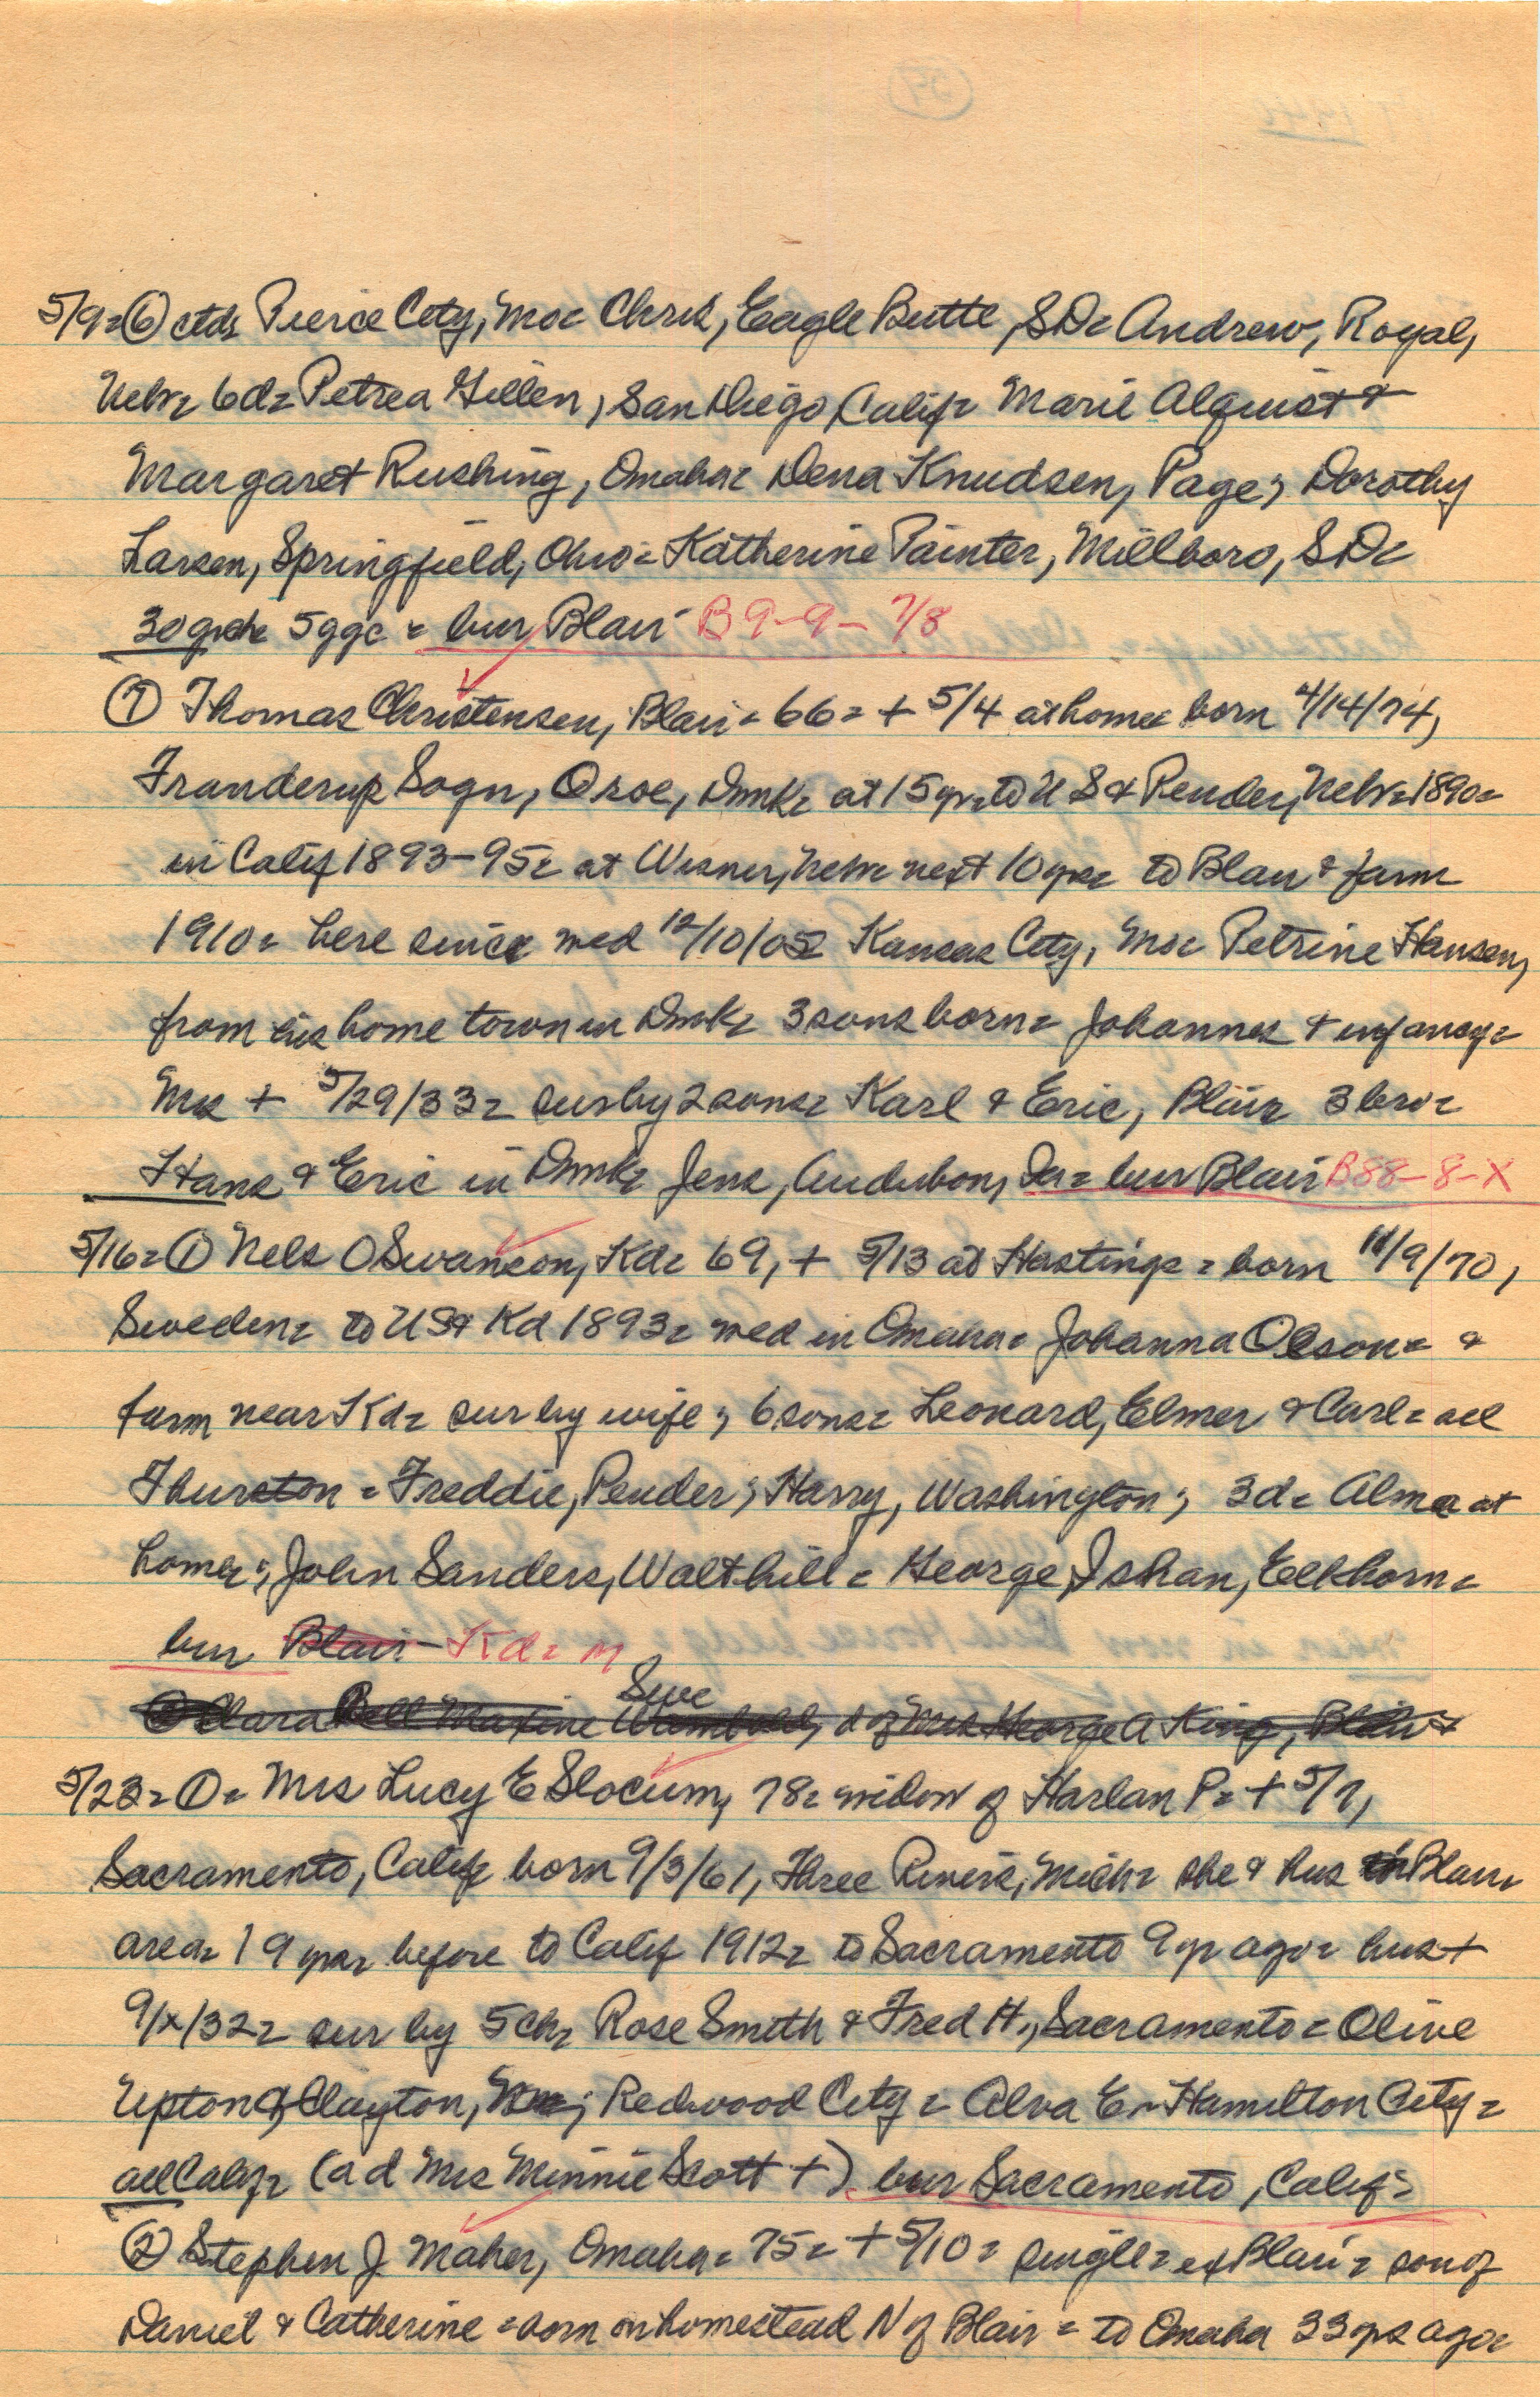 5/9= ⑥ ctd= Pierce City, Mo= Chris, Eagle Butte, SD= Andrew, Royal,
Nebr= 6d= Petrea Gillen, San Diego, Calif= Marie Alquist &
Margaret Rushing, Omaha= Dena Knudsen, Page; Dorothy
Larsen, Springfield, Ohio= Katherine Painter, Millboro, SD=
30 grch= 5ggc = bur Blair B 9-9- 7/8
⑦ Thomas Christensen, Blair= 66= + 5/4 at home= born 4/14/74,
Franderup Sogn, Oroe, Dmk= at 15 yr= to US & Pender, Nebr=1890=
in Calif 1893-95= at Wisner, Nebr= next 10 yrs= to Blair & farm
1910= here since wed 12/10/05= Kansas City, Mo= Petrine Hansen,
from his home town in Dmk= 3 sons born= Johannes + infancy=
Mrs + 5/29/33= sur by 2 sons= Karl & Eric, Blair= 3 bro=
Hans & Eric in Dmk= Jens, Audubon, Ia= bur Blair B88-8-X
5/16= ① Nels O Swanson, Kd= 69, + 5/13 at Hastings = born 11/9/70,
Sweden= to US & Kd 1893= wed in Omaha= Johanna Olson= &
farm near Kd= sur by wife; 6 sons= Leonard, Elmer & Carl= all
Thurston = Freddie, Pender; Harry, Washington; 3d= Alma at
home; John Sanders, Walthill= George Ishan, Elkhorn=
bur Blair - Kd= M
Sive
② Clara Bell Maxine, d of Mrs George A King, Blair=
5/23= ①= Mrs Lucy E Slocum, 78= widow of Harlan P= + 5/7,
Sacramento, Calif= born 9/3/61, Three Rivers, Mich= she & hus Blair
area= 19 yrs= before to Calif 1912= to Sacramento 9 yr ago= hus +
9/x/32= sur by 5ch= Rose Smith & Fred H., Sacramento= Olive
Upton & Clayton, Redwood City= Alva E- Hamilton City=
all Calif= (a d Mrs Minnie Scott +) bur Sacramento, Calif=
② Stephen J. Maher, Omaha= 75= + 5/10= single= ex Blair= son of
Daniel & Catherine = born on homestead N of Blair = to Omaha 33 yrs ago=